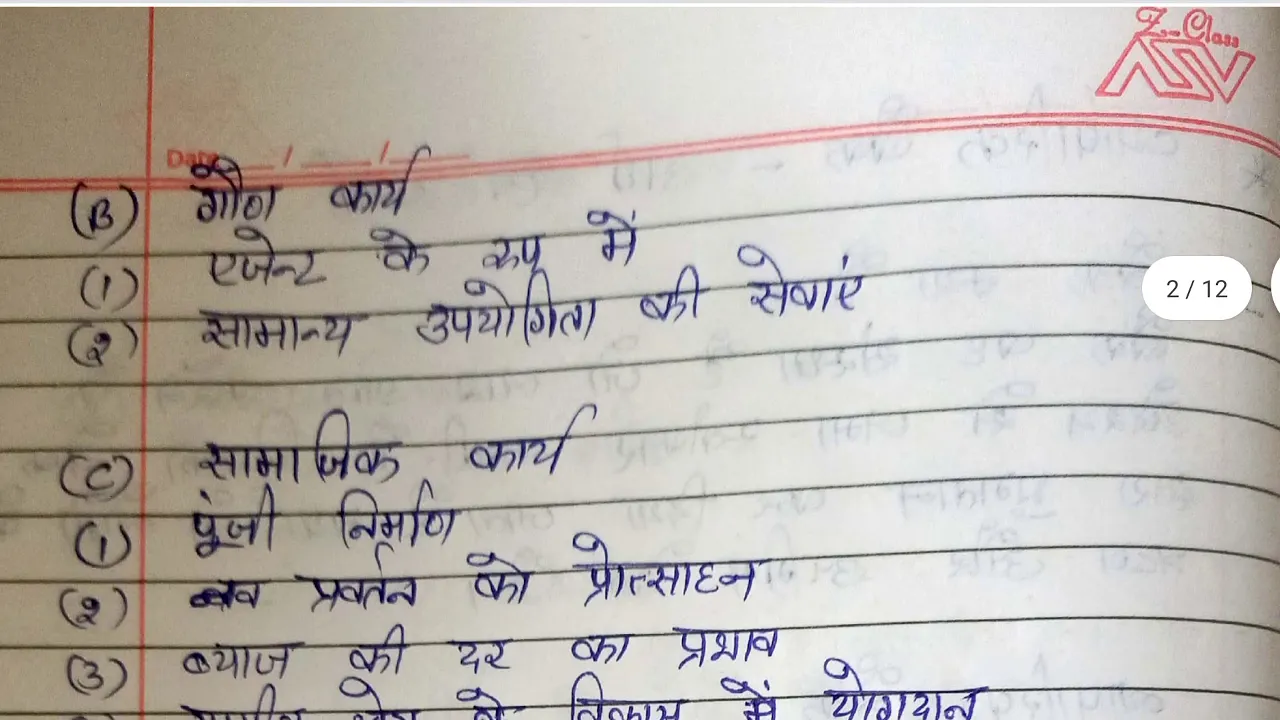 Z-Class
ASV
Date
(B) गौण कार्य
(1) एजेन्ट के रूप में
(2) सामान्य उपयोगिता की सेवाएं
2 / 12
(C) सामाजिक कार्य
(1) पूंजी निर्माण
(2) नव प्रवर्तन को प्रोत्साहन
(3) ब्याज की दर का प्रभाव
के विकास में योगदान